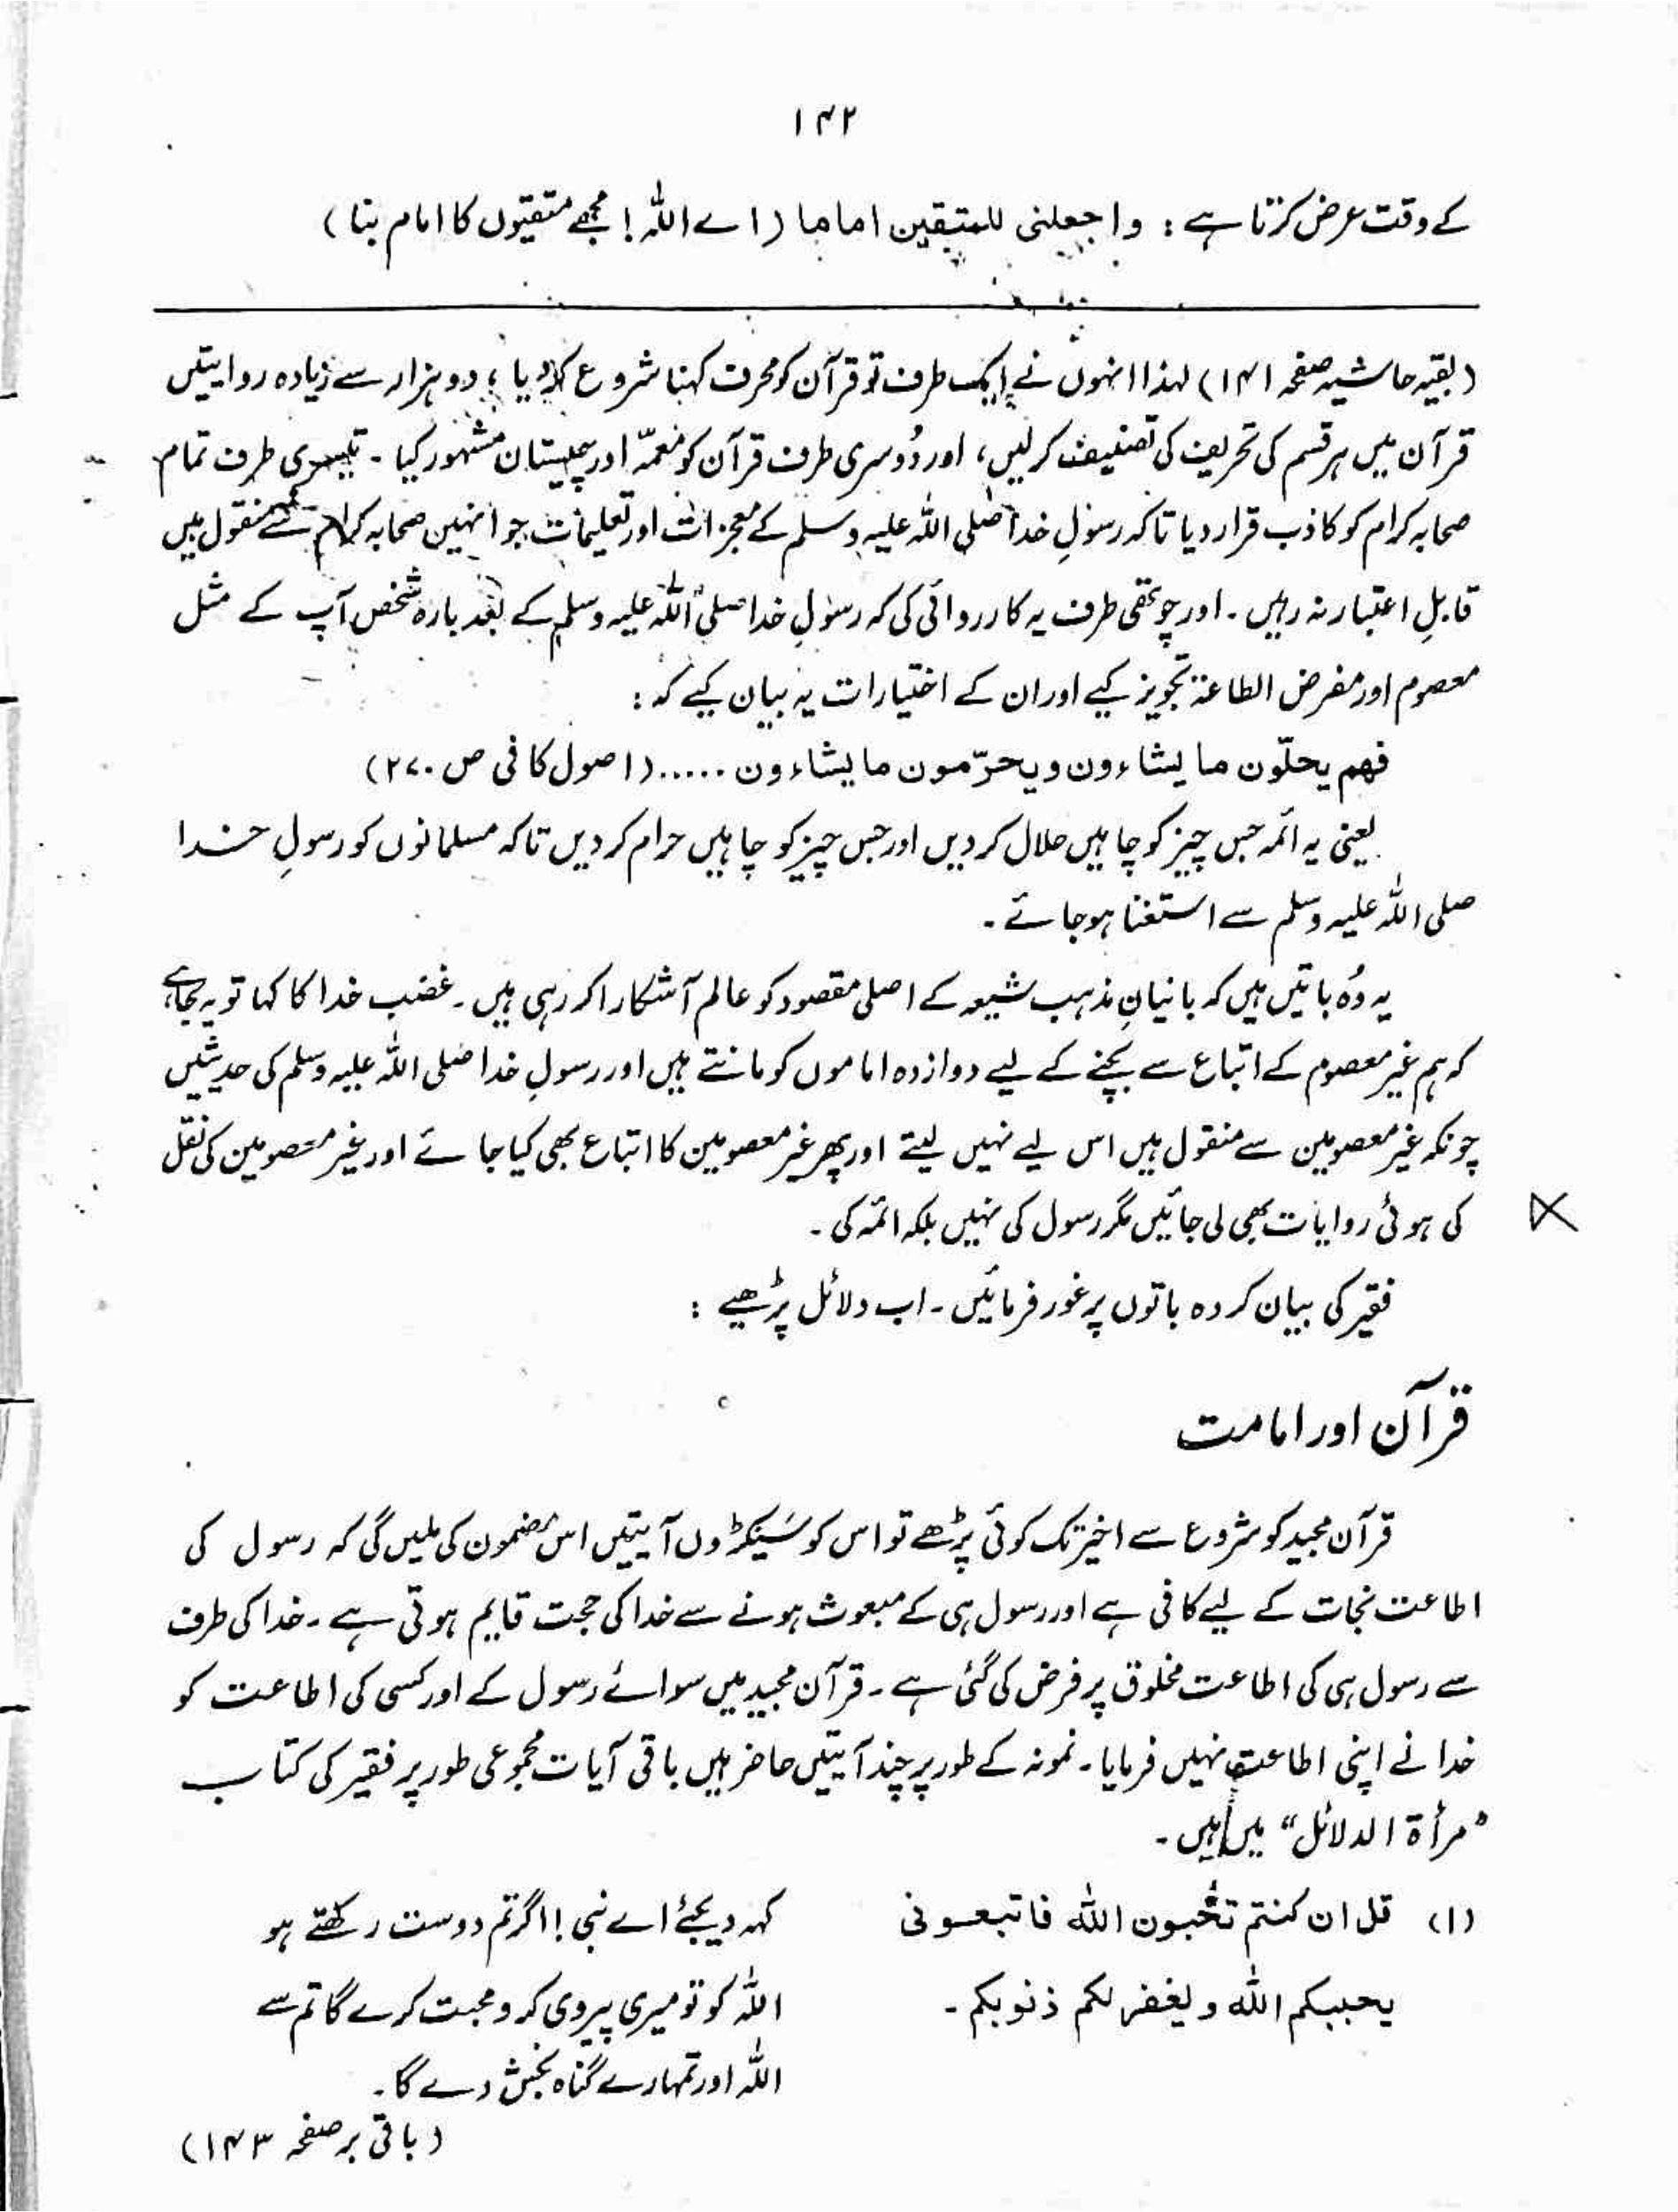 ۱۴۲
کے وقت عرض کرتا ہے : واجعلنی للمتقین اماما (اے اللہ! مجھے متقیوں کا امام بنا)
(بقیہ حاشیہ صفحہ ۱۴۱) لہذا انہوں نے ایک طرف تو قرآن کو محرف کہنا شروع کر دیا ؛ دو ہزار سے زیادہ روایتیں
قرآن میں ہر قسم کی تحریف کی تصنیف کر لیں، اور دُوسری طرف قرآن کو معمّہ اور چیستان مشہور کیا ۔ تیسری طرف تمام
صحابہ کرام کو کاذب قرار دیا تاکہ رسولِ خدا صلی اللہ علیہ وسلم کے معجزات اور تعلیمات جو انہیں صحابہ کرام سے منقول ہیں
قابلِ اعتبار نہ رہیں ۔ اور چوتھی طرف یہ کارروائی کی کہ رسولِ خدا صلی اللہ علیہ وسلم کے بعد بارہ شخص آپ کے مثل
معصوم اور مفرض الطاعۃ تجویز کیے اور ان کے اختیارات یہ بیان کیے کہ :
فهم یحلّون ما یشاءون و یحرّمون ما یشاءون ..... (اصول کافی ص ۲۷۰)
یعنی یہ ائمہ جس چیز کو چاہیں حلال کر دیں اور جس چیز کو چاہیں حرام کر دیں تاکہ مسلمانوں کو رسولِ خدا
صلی اللہ علیہ وسلم سے استغنا ہو جائے ۔
یہ وُہ باتیں ہیں کہ بانیانِ مذہب شیعہ کے اصلی مقصود کو عالم آشکارا کر رہی ہیں ۔ غضب خدا کا کہا تو یہ جائے
کہ ہم غیر معصوم کے اتباع سے بچنے کے لیے دوازدہ اماموں کو مانتے ہیں اور رسولِ خدا صلی اللہ علیہ وسلم کی حدیثیں
چونکہ غیر معصومین سے منقول ہیں اس لیے نہیں لیتے اور پھر غیر معصومین کا اتباع بھی کیا جائے اور غیر معصومین کی نقل
کی ہوئی روایات بھی لی جائیں مگر رسول کی نہیں بلکہ ائمہ کی ۔
فقیر کی بیان کردہ باتوں پر غور فرمائیں ۔ اب دلائل پڑھیے :
قرآن اور امامت
قرآن مجید کو شروع سے اخیر تک کوئی پڑھے تو اس کو سَینکڑوں آیتیں اس مضمون کی ملیں گی کہ رسول کی
اطاعت نجات کے لیے کافی ہے اور رسول ہی کے مبعوث ہونے سے خدا کی حجت قایم ہوتی ہے ۔ خدا کی طرف
سے رسول ہی کی اطاعت مخلوق پر فرض کی گئی ہے ۔ قرآن مجید میں سوائے رسول کے اور کسی کی اطاعت کو
خدا نے اپنی اطاعت نہیں فرمایا ۔ نمونہ کے طور پر چند آیتیں حاضر ہیں باقی آیات مجموعی طور پر فقیر کی کتاب
"مرأۃ الدلائل" میں ہیں ۔
(۱) قل ان کنتم تحبون اللہ فاتبعونی
یحببکم اللہ و یغفر لکم ذنوبکم ۔
کہہ دیجئے اے نبی ! اگر تم دوست رکھتے ہو
اللہ کو تو میری پیروی کرو محبت کرے گا تم سے
اللہ اور تمہارے گناہ بخش دے گا ۔
(باقی بر صفحہ ۱۴۳)